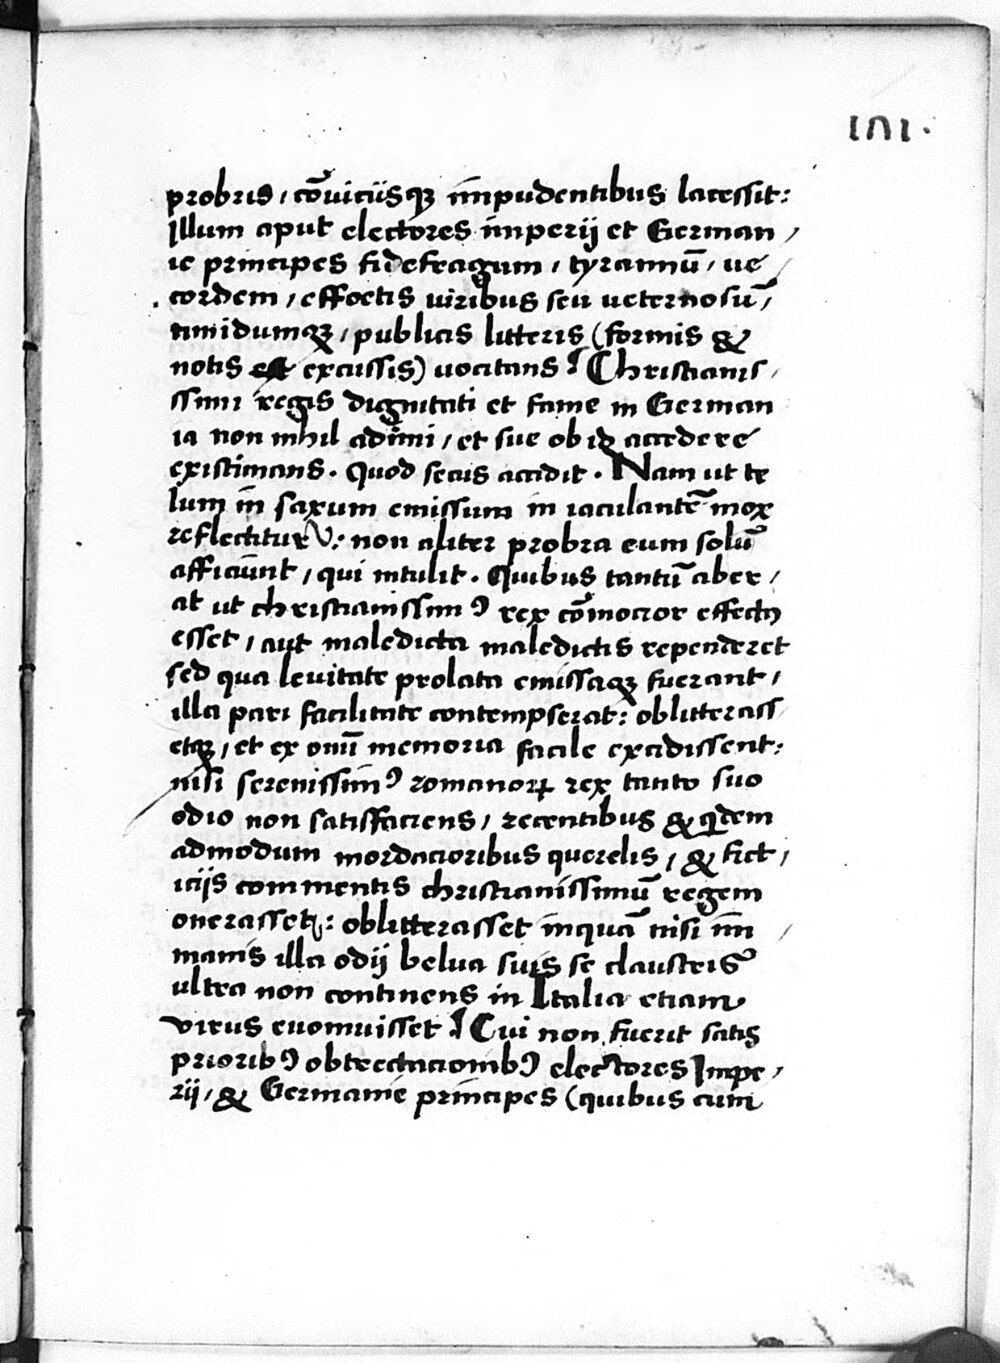 101.
probris / cōuiciisqꝫ impudentibus lacessit:
Illum aput electores imperij et German /
ie principes fidefragum / tyrannū / ue /
cordem / effoetis uiribus seu ueternosū /
timidumqꝫ / publicis litteris (formis &
notis excussis) uocitans ? Christianis /
simi regis dignitati et fame in German
ia non nihil adimi / et sue ob id accedere
existimans . Quod secus accidit . Nam ut te
lum in saxum emissum in iaculantē mox
reflectitur : non aliter probra eum solū
afficiunt / qui intulit . Quibus tantū aber /
at ut christianissimꝰ rex cōmocior effectꝰ
esset / aut maledicta maledictis rependeret
sed qua leuitate prolata emissaqꝫ fuerant /
illa pari facilitate contempserat : oblitterass
etqꝫ / et ex omī memoria facile excidissent :
nisi serenissimꝰ romanoꝝ rex tanto suo
odio non satisfaciens / recentibus & qdem
admodum mordacioribus querelis / & fict /
iciis commentis christianissimū regem
onerasset : oblitterasset inquā nisi im /
manis illa odij belua suis se claustris
ultra non continens in Italia etiam
virus euomuisset ? Cui non fuerit satis
prioribꝰ obtrectacionibꝰ electores Impe /
rij / & Germanie principes (quibus cum